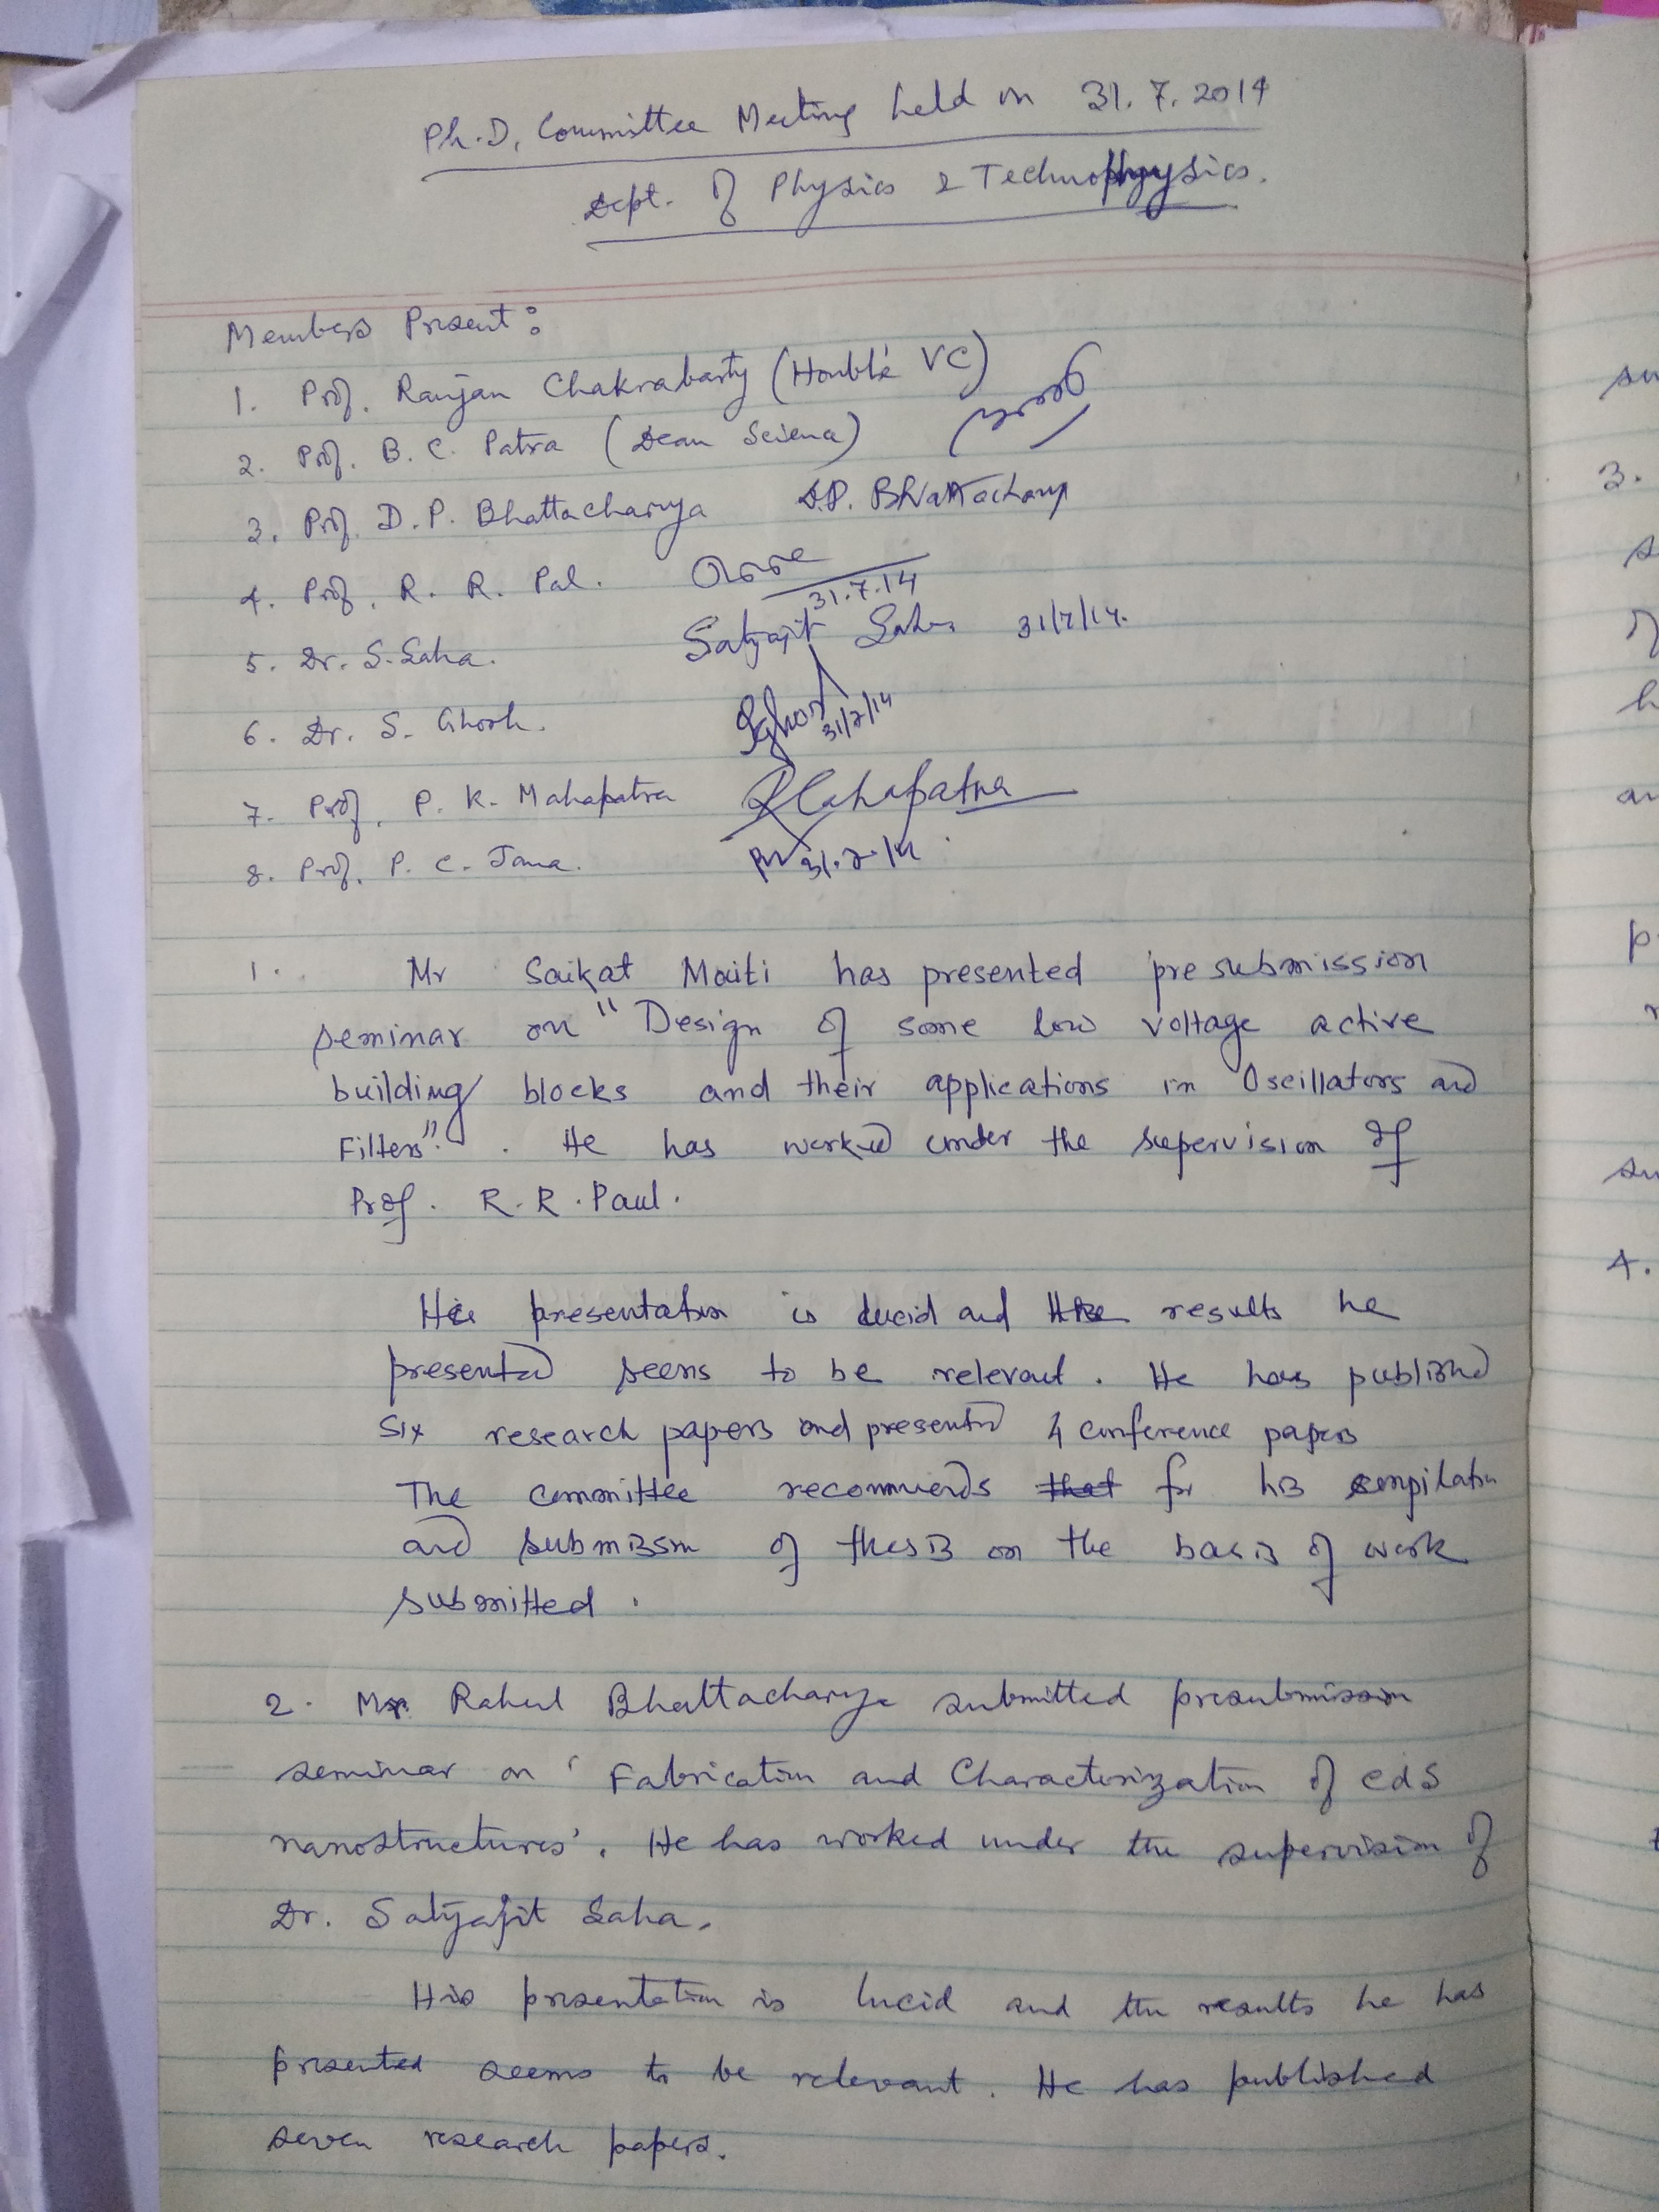 Ph.D. Committee Meeting held on 31.7.2014
Dept. of Physics & Technophysics.
Members Present:
1. Prof. Ranjan Chakrabarty (Honble VC)
2. Prof. B. C. Patra (Dean Science)
3. Prof. D. P. Bhattacharya D.P. Bhattacharya
4. Prof. R. R. Pal.
31.7.14
5. Dr. S. Saha. Satyajit Saha 31/7/14.
6. Dr. S. Ghosh. SGhosh 31/7/14
7. Prof. P. K. Mahapatra PKMahapatra
8. Prof. P. C. Jana. 31.7.14
1. Mr Saikat Maiti has presented pre submission
seminar on "Design of some low voltage active
building blocks and their applications in Oscillators and
Filters". He has worked under the supervision of
Prof. R. R. Paul.
His presentation is lucid and the results he
presented seems to be relevant. He has published
Six research papers and presented 4 conference papers
The committee recommends that for his compilation
and submission of thesis on the basis of work
submitted.
2. Mr. Rahul Bhattacharya submitted presubmission
seminar on 'Fabrication and Characterization of CdS
nanostructures'. He has worked under the supervision of
Dr. Satyajit Saha.
His presentation is lucid and the results he has
presented seems to be relevant. He has published
seven research papers.
3.
4.